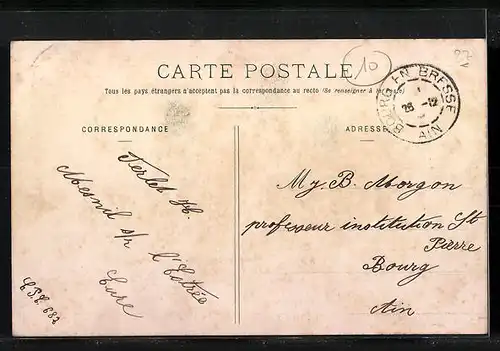 10
CARTE POSTALE
Tous les pays étrangers n'acceptent pas la correspondance au recto (Se renseigner à la poste)
CORRESPONDANCE
ADRESSE
BOURG EN BRESSE
26 -12
AIN
Terlet H.
Mesnil s/
l'Estrée
Eure
My. B. Morgon
professeur institution St
Pierre
Bourg
Ain